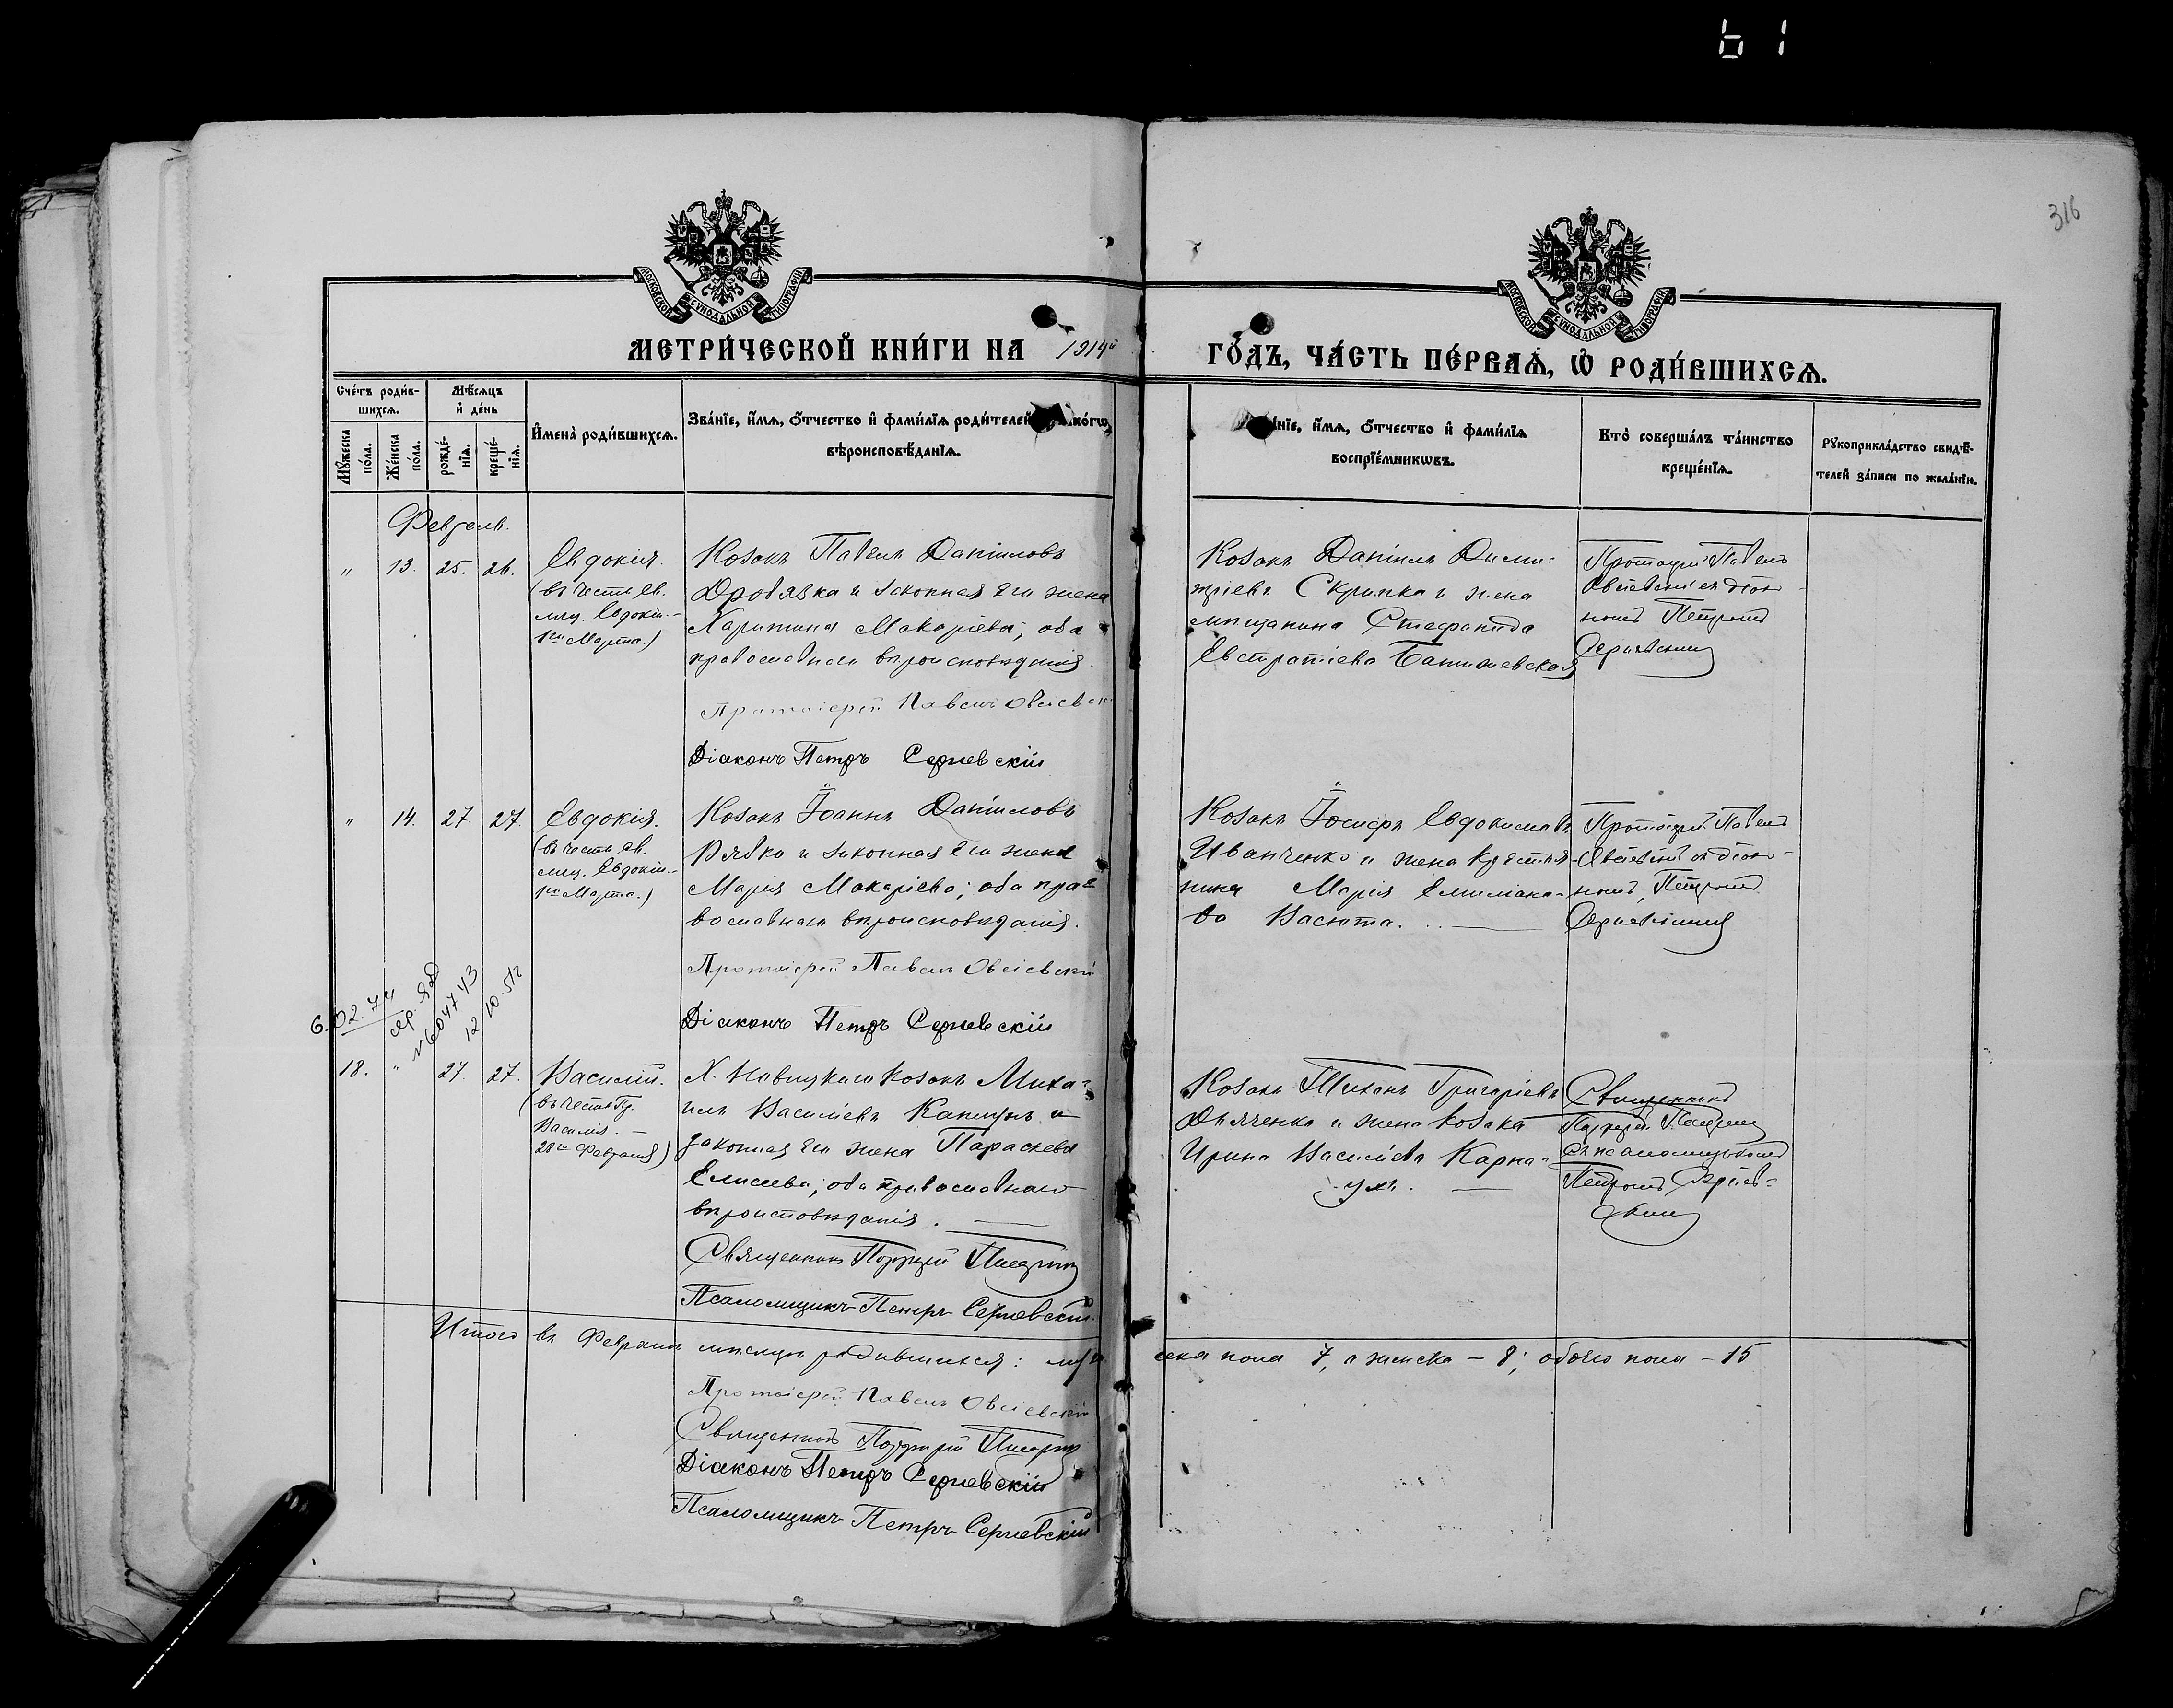 61
316
МОСКОВСКОЙ СУНОДАЛЬНОЙ ТИПОГРАФІИ
МОСКОВСКОЙ СУНОДАЛЬНОЙ ТИПОГРАФІИ
МЕТРИ́ЧЕСКОЙ КНИ́ГИ НА 1914й
ГО́ДЪ, ЧА́СТЬ ПЕ́РВАѦ, Ѡ РОДИ́ВШИХСѦ.
Сче́тъ роди́в-
шихсѧ.
Мѣ́сѧцъ
и҆ де́нь
Мꙋ́жеска
по́ла.
Же́нска
по́ла.
рожде́-
нїѧ.
креще́-
нїѧ.
И҆мена̀ роди́вшихсѧ.
Зва́нїе, и҆́мѧ, ѻ҆́тчество и҆ фами́лїѧ роди́телей
вѣроисповѣ́данїѧ.
и҆́мѧ, ѻ҆́тчество и҆ фами́лїѧ
воспрїе́мникѡвъ.
Кто̀ соверша́лъ та́инство
креще́нїѧ.
Рꙋкоприкла́дство свидѣ́-
телей за́писи по жела́нїю.
Февраль.
" 13. 25. 26.
Евдокія.
(въ честь св.
мчц. Евдокіи-
1го Марта.)
Козакъ Павелъ Даніиловъ
Дробязка и законная его жена
Харитина Макаріева; оба
православнаго вѣроисповѣданія.
Протоіерей Павелъ Овсіевскі
Діаконъ Петръ Сергіевскій
Козакъ Даніилъ Дими=
тріевъ Скрипка и жена
мѣщанина Стефанида
Евстратіева
Протоіерей Павелъ
Овсіевскій съ діако-
номъ Петромъ
Сергіевскимъ
" 14. 27. 27.
Евдокія.
(въ честь св.
мчц. Евдокіи-
1го Марта.)
Козакъ Іоаннъ Даніиловъ
Рябко и законная его жена
Марія Макаріева; оба пра=
вославнаго вѣроисповѣданія.
Протоіерей Павелъ Овсіевскій
Діаконъ Петръ Сергіевскій
Козакъ Іосифъ Евдокимовъ
Иванченко и жена крестья-
нина Марія
ва Васюта.
Протоіерей Павелъ
Овсіевскій съ діако-
номъ Петромъ
Сергіевскимъ
6.02.74
12 10.52
18. " 27. 27.
Василій.
(въ честь Пр.
Василія. —
28го Февраля)
Х. Козакъ Миха=
илъ Васильевъ и
законная его жена Параскева
Елисеева; оба православнаго
вѣроисповѣданія. —
Священникъ Порфирій
Псаломщикъ Петръ Сергіевскій.
Козакъ Тихонъ Григоріевъ
Дьяченко и жена козака
Ирина Васильева Карна=
ухъ. —
Священникъ
Порфирій
съ псаломщикомъ
Петромъ Сергіев=
скимъ
Итого въ Февралѣ мѣсяцѣ родившихся: муже
ска пола 7, а женска — 8; обоего пола — 15
Протоіерей Павелъ Овсіевскій
Священникъ Порфирій
Діаконъ Петръ Сергіевскій
Псаломщикъ Петръ Сергіевскій